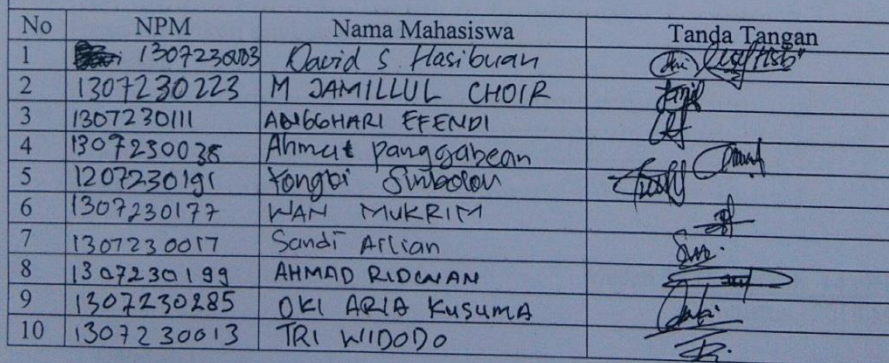 No NPM Nama Mahasiswa Tanda Tangan
1 David S Hasibuan
2 1307230223 M JAMILLUL CHOIR
3 1307230111 ANGGHARI EFENDI
4 1307230038 Ahmat panggabean
5 1207230191 Tongbi Simbolon
6 1307230177 WAN MUKRIM
7 1307230017 Sandi Arlian
8 1307230199 AHMAD RIDWAN
9 1307230285 OKI ARIA KUSUMA
10 1307230013 TRI WIDODO